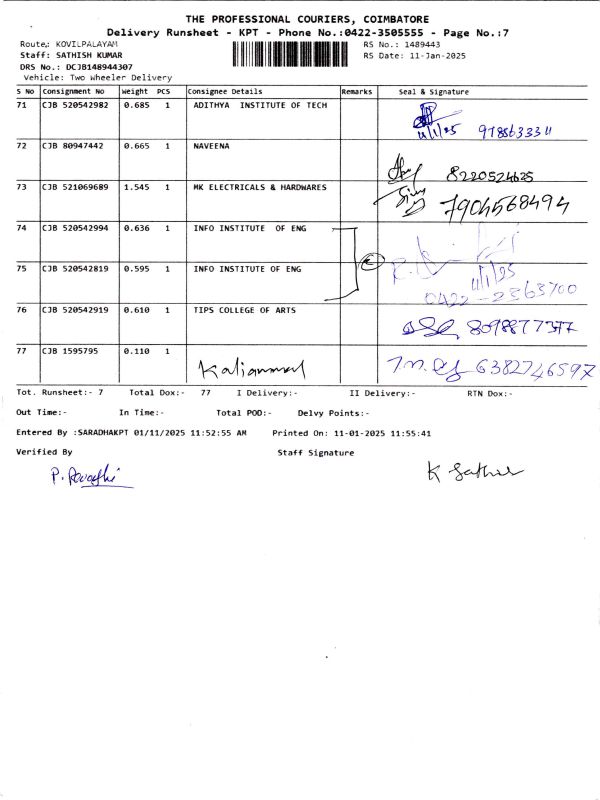 THE PROFESSIONAL COURIERS, COIMBATORE
Delivery Runsheet - KPT - Phone No.:0422-3505555 - Page No.:7
Route: KOVILPALAYAM RS No.: 1489443
Staff: SATHISH KUMAR RS Date: 11-Jan-2025
DRS No.: DCJB148944307
Vehicle: Two Wheeler Delivery
S No Consignment No Weight PCS Consignee Details Remarks Seal & Signature
71 CJB 520542982 0.685 1 ADITHYA INSTITUTE OF TECH
11/1/25
72 CJB 80947442 0.665 1 NAVEENA
8220524625
73 CJB 521069689 1.545 1 MK ELECTRICALS & HARDWARES
7904568494
74 CJB 520542994 0.636 1 INFO INSTITUTE OF ENG
75 CJB 520542819 0.595 1 INFO INSTITUTE OF ENG
11/1/25
0422-2363700
76 CJB 520542919 0.610 1 TIPS COLLEGE OF ARTS
77 CJB 1595795 0.110 1
Kaliammal 6382746597
Tot. Runsheet:- 7 Total Dox:- 77 I Delivery:- II Delivery:- RTN Dox:-
Out Time:- In Time:- Total POD:- Delvy Points:-
Entered By :SARADHAKPT 01/11/2025 11:52:55 AM Printed On: 11-01-2025 11:55:41
Verified By Staff Signature
K Sathish